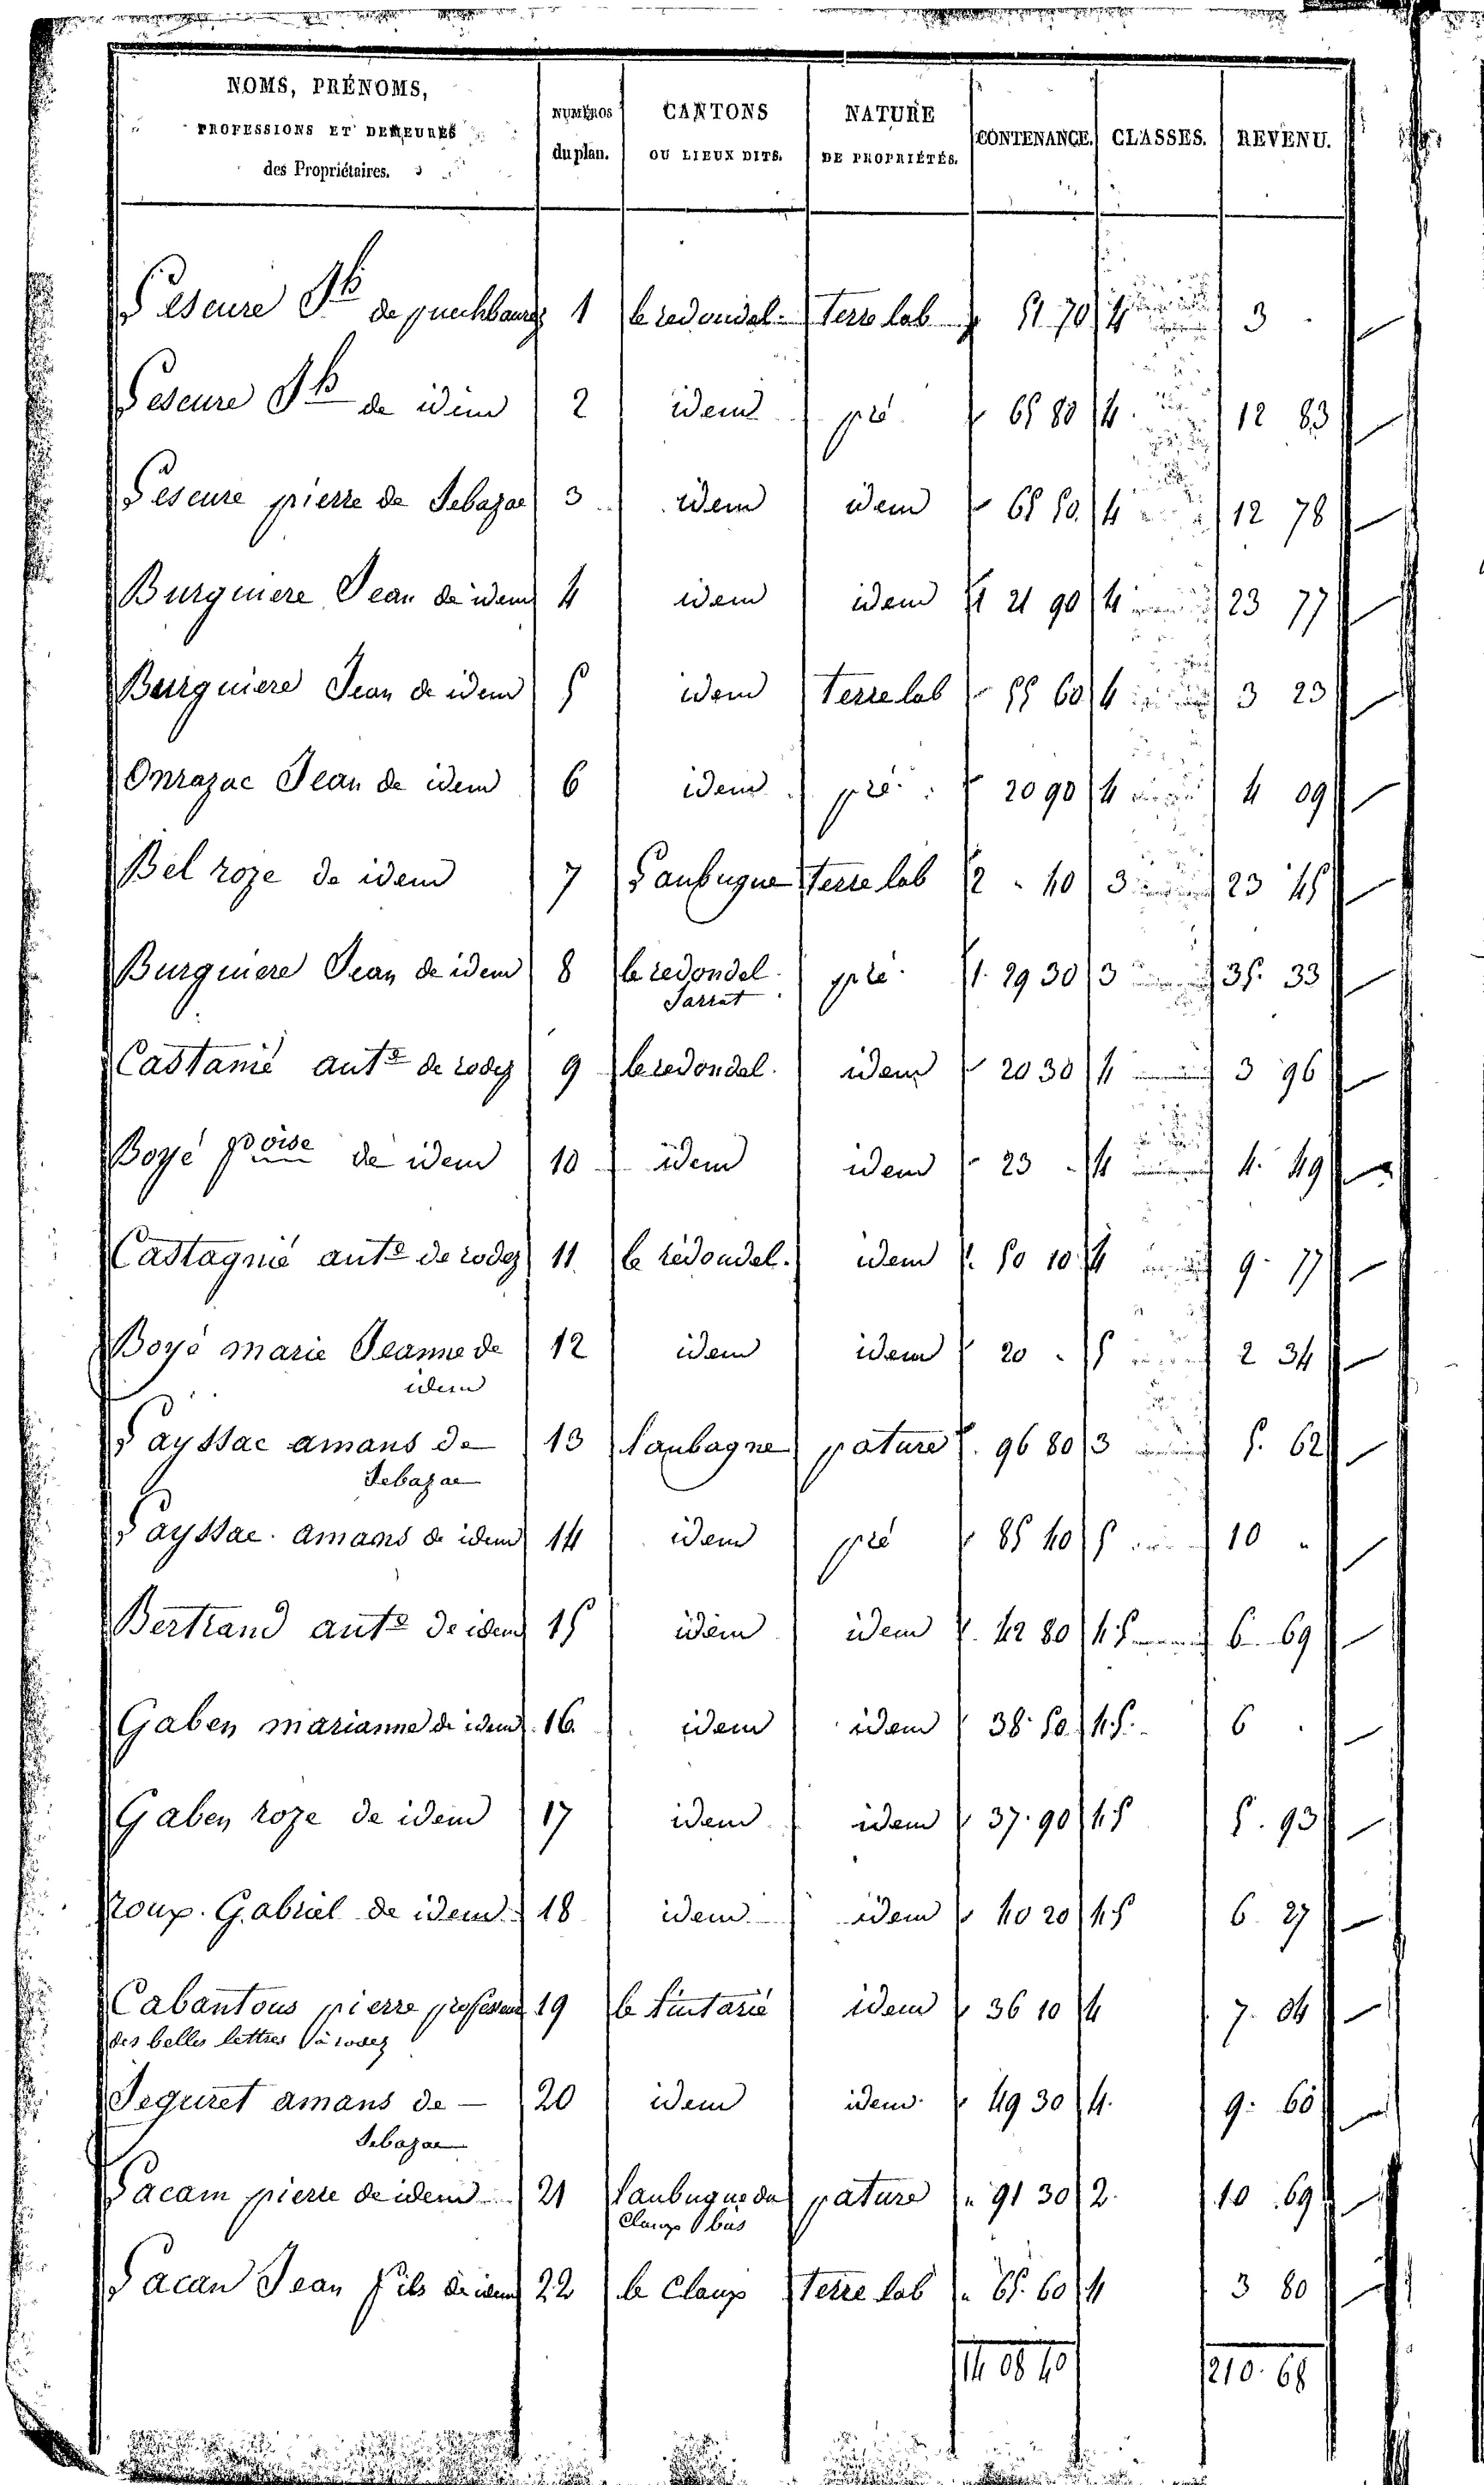 NOMS, PRÉNOMS, PROFESSIONS ET DEMEURES des Propriétaires. NUMÉROS du plan. CANTONS OU LIEUX DITS. NATURE DE PROPRIÉTÉS. CONTENANCE. CLASSES. REVENU.
Lescure Jh de puechbaurez 1 le redondel terre lab 51 70 4 3
Lescure Jh de idem 2 idem pré 65 80 4 12 83
Lescure pierre de Sebazac 3 idem idem 65 50 4 12 78
Burguiere Jean de idem 4 idem idem 1 21 90 4 23 77
Burguiere Jean de idem 5 idem terre lab 55 60 4 3 23
Onrazac Jean de idem 6 idem pré 20 90 4 4 09
Bel roze de idem 7 Laubugue terre lab 2 " 40 3 23 45
Burguiere Jean de idem 8 le redondel pré 1 29 30 3 35 33
Sarrat
Castanié ante de rodez 9 le redondel idem 20 30 4 3 96
Boyé fçoise de idem 10 idem idem 23 " 4 4 49
Castagnié ante de rodez 11 le redondel idem 50 10 4 9 77
Boyé marie Jeanne de 12 idem idem 20 " 5 2 34
idem
Layssac amans de 13 laubagne pature 96 80 3 5 62
Sebazac
Layssac amans de idem 14 idem pré 85 40 5 10 "
Bertrand ante de idem 15 idem idem 42 80 4.5 6 69
Gaben marianne de idem 16 idem idem 38 50 4.5 6
Gaben roze de idem 17 idem idem 37 90 4.5 5 93
roux Gabriel de idem 18 idem idem 40 20 4.5 6 27
Cabantous pierre professeur 19 le tintarié idem 36 10 4 7 04
des belles lettres à rodez
Seguret amans de 20 idem idem 49 30 4 9 60
Sebazac
Lacam pierre de idem 21 laubugue du pature " 91 30 2 10 69
Claux bas
Lacan Jean fils de idem 22 le Claux terre lab " 65 60 4 3 80
14 08 40 210 68